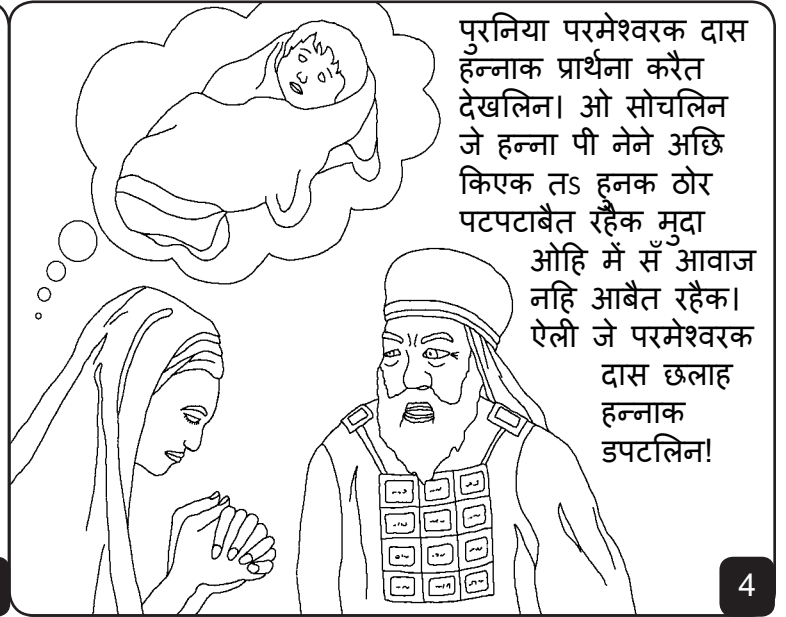 पुरनिया परमेश्वरक दास
हन्नाक प्रार्थना करैत
देखलिन। ओ सोचलिन
जे हन्ना पी नेने अछि
किएक तऽ हुनक ठोर
पटपटाबैत रहैक मुदा
ओहि में सँ आवाज
नहि आबैत रहैक।
ऐली जे परमेश्वरक
दास छलाह
हन्नाक
डपटलिन!
4